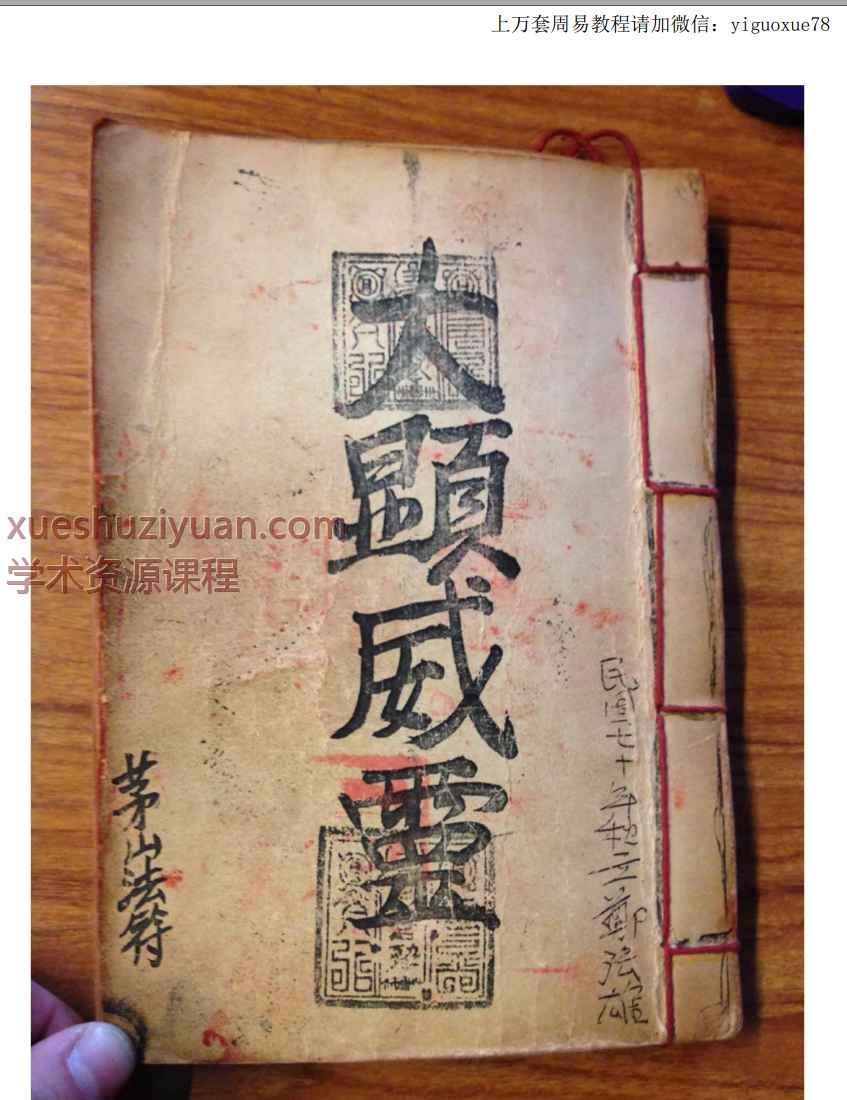 上万套周易教程请加微信：yiguoxue78
大顯威靈
xueshuziyuan.com
学术资源课程
民国七十年秋立鄭弘雄
茅山法符